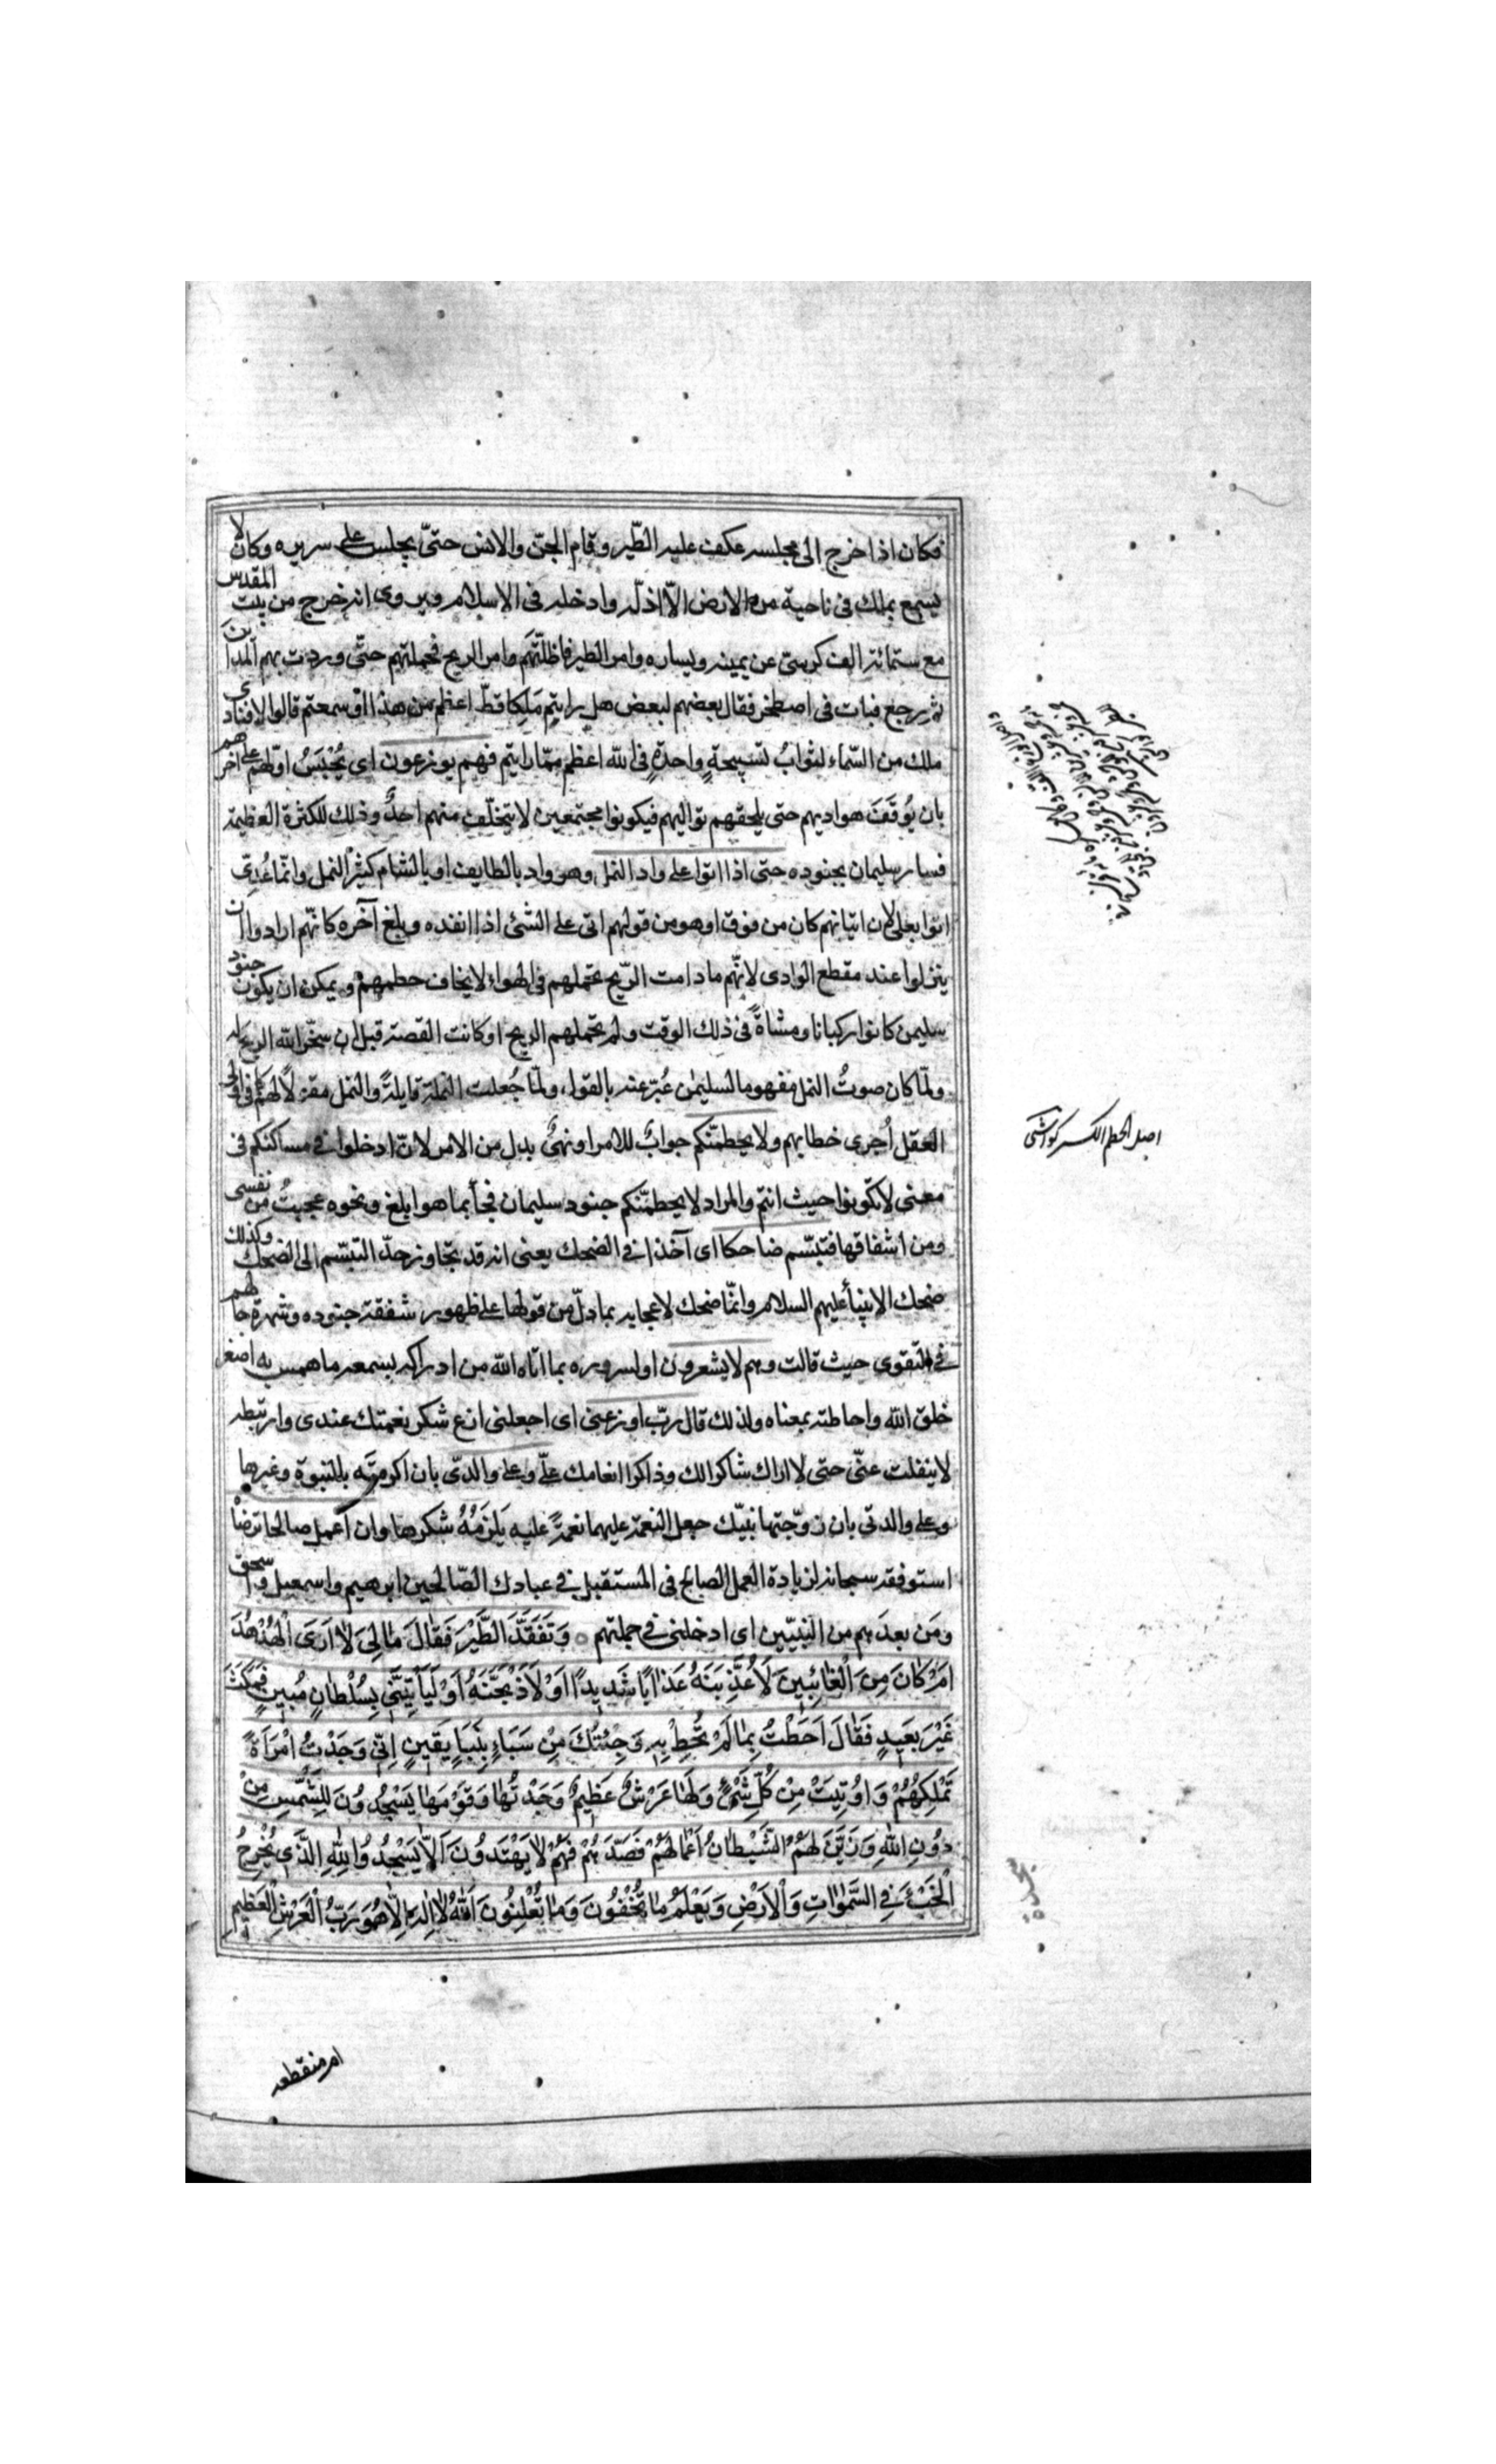 فكان اذا خرج الى مجلسه عكف عليه الطّير وقام الجنّ والانس حتىّ يجلس على سريره وكان لا
يسمع بملك فى ناحية من الارض الّا اذلّه وادخله فى الاسلام ويروى انه خرج من بيت المقدس
مع ستمائة الف كرسىّ عن يمينه ويساره وامر الطير فاظلّتهم وامر الريح فحملتهم حتّى وردت بهم المداين
ثم رجع فبات فى اصطخر فقال بعضهم لبعض هل رايتم مَلِكا قطّ اعظم من هذا او سمعتم قالوا لا فنادى
ملك من السّماء لثوابُ تسبيحةٍ واحدةٍ فى الله اعظم ممّا رايتم فهم يوزعون اى يُحْبَسُ اوّلهم على اخرهم
بان يُوقَفَ هواديهم حتى يلحقهم تواليهم فيكونوا مجتمعين لا يتخلّف منهم احدٌ وذلك للكثرة العظيمة
فسار سليمان بجنوده حتى اذا اتوا على واد النمل وهو واد بالطايف او بالشام كثير النمل وانّما عُدّى
اتوا بعلى لان اتيانهم كان من فوق او هو من قولهم اتى على الشئ اذا انفده وبلغ آخره كانّهم ارادوا ان
ينزلوا عند مقطع الوادى لانّهم ما دامت الرّيح تحملهم فى الهواء لا يخاف حطمهم ويمكن ان يكون جنود
سليمن كانوا ركبانا ومشاةً فى ذلك الوقت ولم تحملهم الريح او كانت القصة قبل ان سخّر الله الريح له
ولمّا كان صوتُ النمل مفهوما لسليمٰن عُبّر عنه بالقول ولمّا جُعلت النملة قايلةً والنمل مقولًا لهم كما فى اولى
العقل اُجرى خطابهم ولا يحطمنّكم جوابٌ للامر او نهىٌ بدل من الامر لانّ ادخلوا فى مساكنكم فى
معنى لا تكونوا حيث انتم والمراد لا يحطمنّكم جنود سليمان فجأ بما هو ابلغ ونحوه عجبتُ من نفسى
ومن اشفاقها فتبسّم ضاحكا اى آخذا فى الضحك يعنى انه قد تجاوز حدّ التبسّم الى الضحك وكذلك
ضحك الانبيأ عليهم السلام وانّما ضحك لاعجابه بما دلّ من قولها على ظهور شفقة جنوده وشهرة حالهم
فى التقوى حيث قالت وهم لا يشعرون او لسروره بما اتاه الله من ادراكه بسمعه ما همس به اصغر
خلق الله واحاطته بمعناه ولذلك قال ربّ اوزعنى اى اجعلنى ازع شكر نعمتك عندى وارتبطه
لا ينفلت عنّى حتى لا اراك شاكرا لك وذاكرا انعامك علىّ وعلى والدىّ بان اكرمته بالنبوة وغيرها
وعلى والدتى بان زوّجتها نبيّك جعل النعمة عليهما نعمةً عليه يَلزَمُهُ شكرها وان اعمل صالحا ترضاْ
استوفقه سبحانه لزيادة العمل الصالح فى المستقبل فى عبادك الصّالحين ابرهيم واسمعيل واسحق
ومَن بعدَهم من النبيّين اى ادخلنى فى جملتهم ○ وَتَفَقَّدَ الطَّيْرَ فَقَالَ مَا لِىَ لَا اَرَى الْهُدْهُدَ
اَمْ كَانَ مِنَ الْغَائِبِينَ لَاُعَذِّبَنَّهُ عَذَابًا شَدِيدًا اَوْ لَاَذْبَحَنَّهُ اَوْ لَيَأْتِيَنِّى بِسُلْطَانٍ مُبِينٍ فَمَكَثَ
غَيْرَ بَعِيدٍ فَقَالَ اَحَطْتُ بِمَا لَمْ تُحِطْ بِهِ وَجِئْتُكَ مِنْ سَبَاءٍ بِنَبَاٍ يَقِينٍ اِنِّى وَجَدْتُ امْرَاَةً
تَمْلِكُهُمْ وَاُوتِيَتْ مِنْ كُلِّ شَىْءٍ وَلَهَا عَرْشٌ عَظِيمٌ وَجَدْتُهَا وَقَوْمَهَا يَسْجُدُونَ لِلشَّمْسِ مِنْ
دُونِ اللّٰهِ وَزَيَّنَ لَهُمُ الشَّيْطَانُ اَعْمَالَهُمْ فَصَدَّهُمْ فَهُمْ لَا يَهْتَدُونَ اَلَّا يَسْجُدُوا لِلّٰهِ الَّذِى يُخْرِجُ
الْخَبْءَ فِى السَّمٰوَاتِ وَالْاَرْضِ وَيَعْلَمُ مَا تُخْفُونَ وَمَا تُعْلِنُونَ اَللّٰهُ لَا اِلٰهَ اِلَّا هُوَ رَبُّ الْعَرْشِ الْعَظِيمِ
اصل الحطم الكسر كواشى
سجدة
ام منقطعه